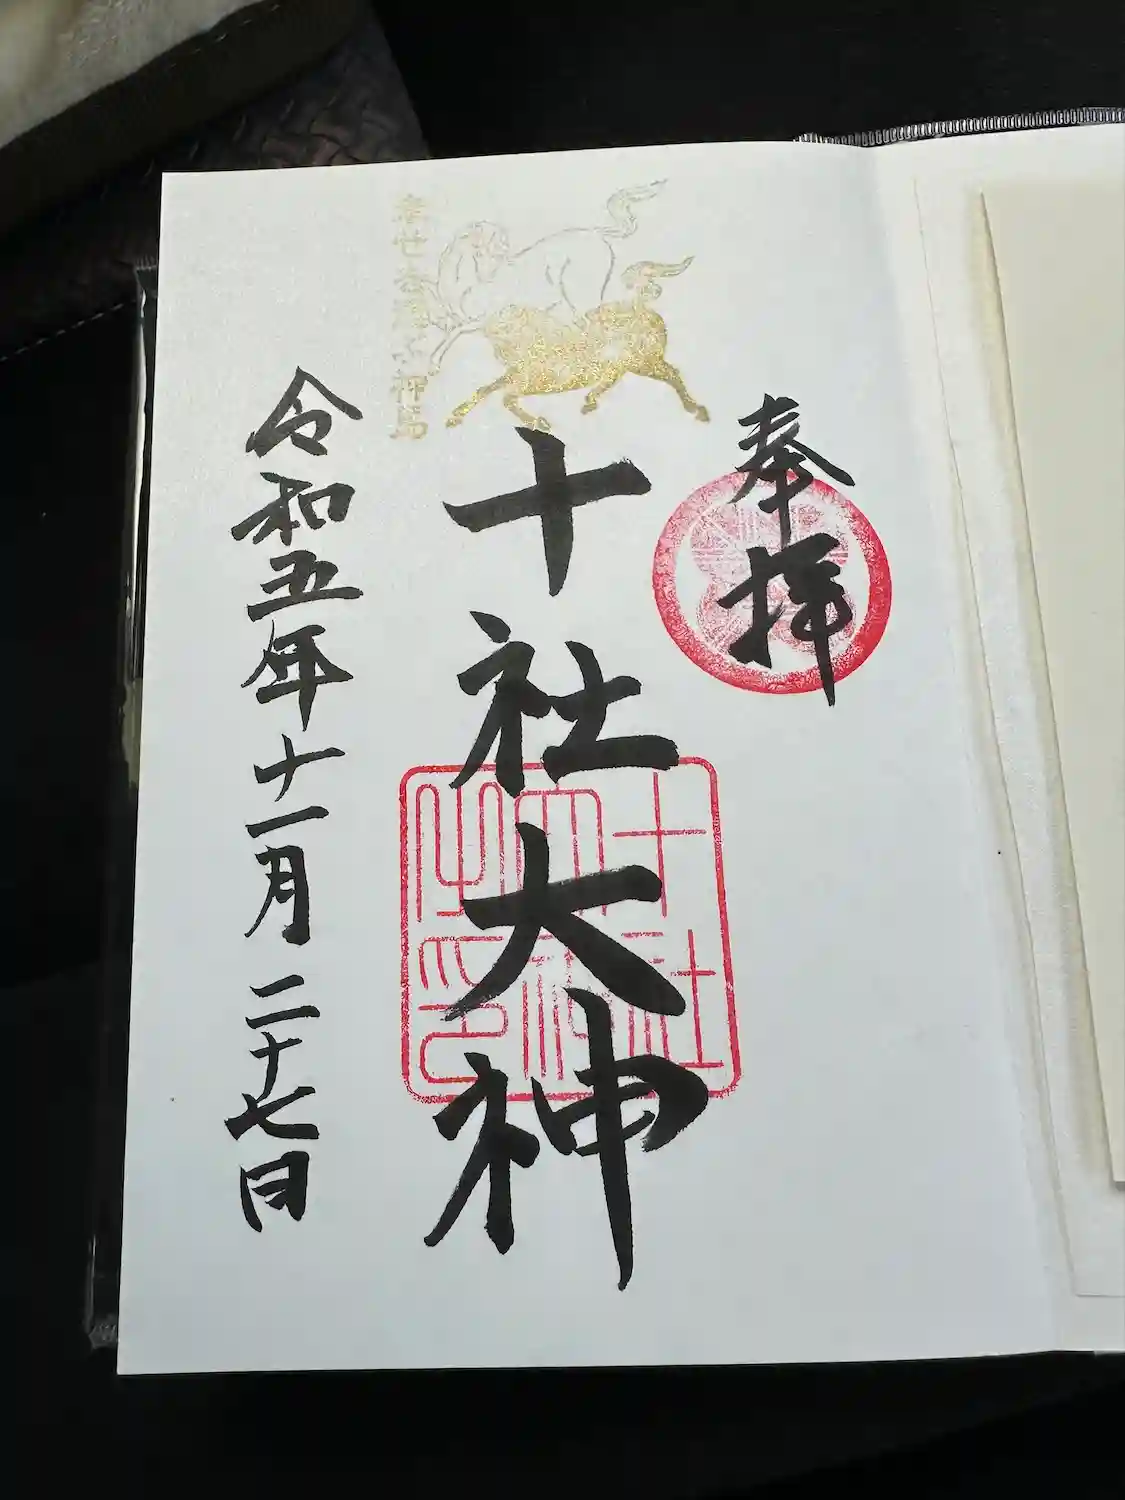 奉拝
十社大神
十社
大神
之印
令和五年十一月二十七日